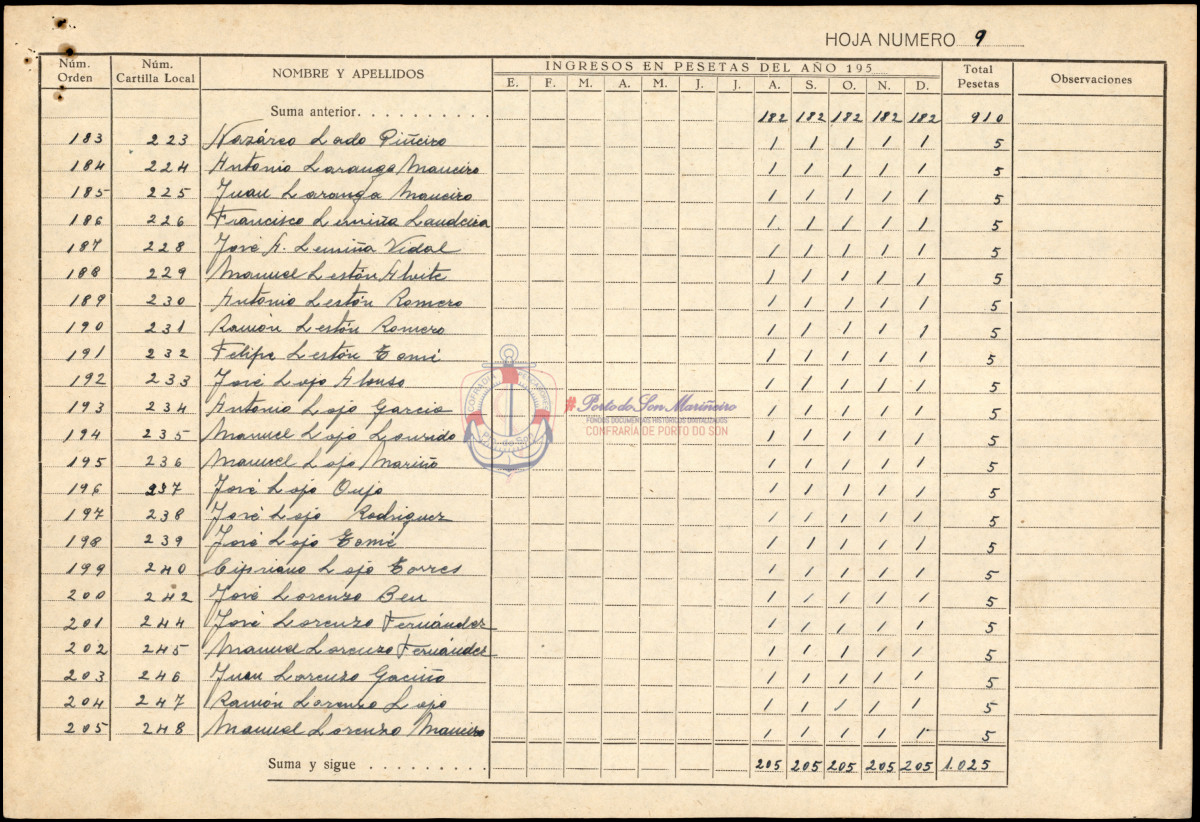 HOJA NUMERO 9
Núm. Orden Núm. Cartilla Local NOMBRE Y APELLIDOS INGRESOS EN PESETAS DEL AÑO 195 Total Pesetas Observaciones
E. F. M. A. M. J. J. A. S. O. N. D.
Suma anterior. . . . . . . . . . 182 182 182 182 182 910
183 223 Nazáreo Lado Piñeiro 1 1 1 1 1 5
184 224 Antonio Laranga Maneiro 1 1 1 1 1 5
185 225 Juan Laranga Maneiro 1 1 1 1 1 5
186 226 Francisco Lemiña 1 1 1 1 1 5
187 228 José A. Lemiña Vidal 1 1 1 1 1 5
188 229 Manuel Lestón Alvite 1 1 1 1 1 5
189 230 Antonio Lestón Romero 1 1 1 1 1 5
190 231 Ramón Lestón Romero 1 1 1 1 1 5
191 232 Felipe Lestón Tomé 1 1 1 1 1 5
192 233 José Lojo Alonso 1 1 1 1 1 5
193 234 Antonio Lojo Garcia 1 1 1 1 1 5
194 235 Manuel Lojo Lourido 1 1 1 1 1 5
195 236 Manuel Lojo Mariño 1 1 1 1 1 5
196 237 José Lojo Oujo 1 1 1 1 1 5
197 238 José Lojo Rodriguez 1 1 1 1 1 5
198 239 José Lojo Tomé 1 1 1 1 1 5
199 240 Cipriano Lojo Torres 1 1 1 1 1 5
200 242 José Lorenzo Ben 1 1 1 1 1 5
201 244 José Lorenzo Fernández 1 1 1 1 1 5
202 245 Manuel Lorenzo Fernández 1 1 1 1 1 5
203 246 Juan Lorenzo Gaciño 1 1 1 1 1 5
204 247 Ramón Lorenzo Lojo 1 1 1 1 1 5
205 248 Manuel Lorenzo Maneiro 1 1 1 1 1 5
Suma y sigue . . . . . . . . . 205 205 205 205 205 1.025
#Porto do Son Mariñeiro
FONDOS DOCUMENTAIS HISTÓRICOS DIGITALIZADOS
CONFRARÍA DE PORTO DO SON